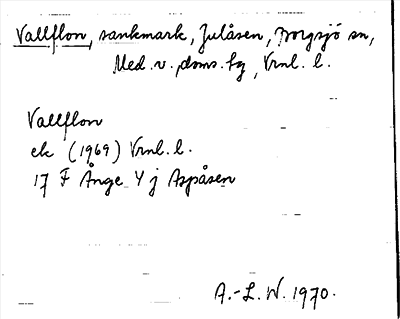 Vallflon, sankmark, Julåsen, Borgsjö sn,
Med. v. doms. hg, Vrnl. l.
Vallflon
ek (1969) Vrnl. l.
17 F Ånge Y j Aspåsen
A.-L. W. 1970.